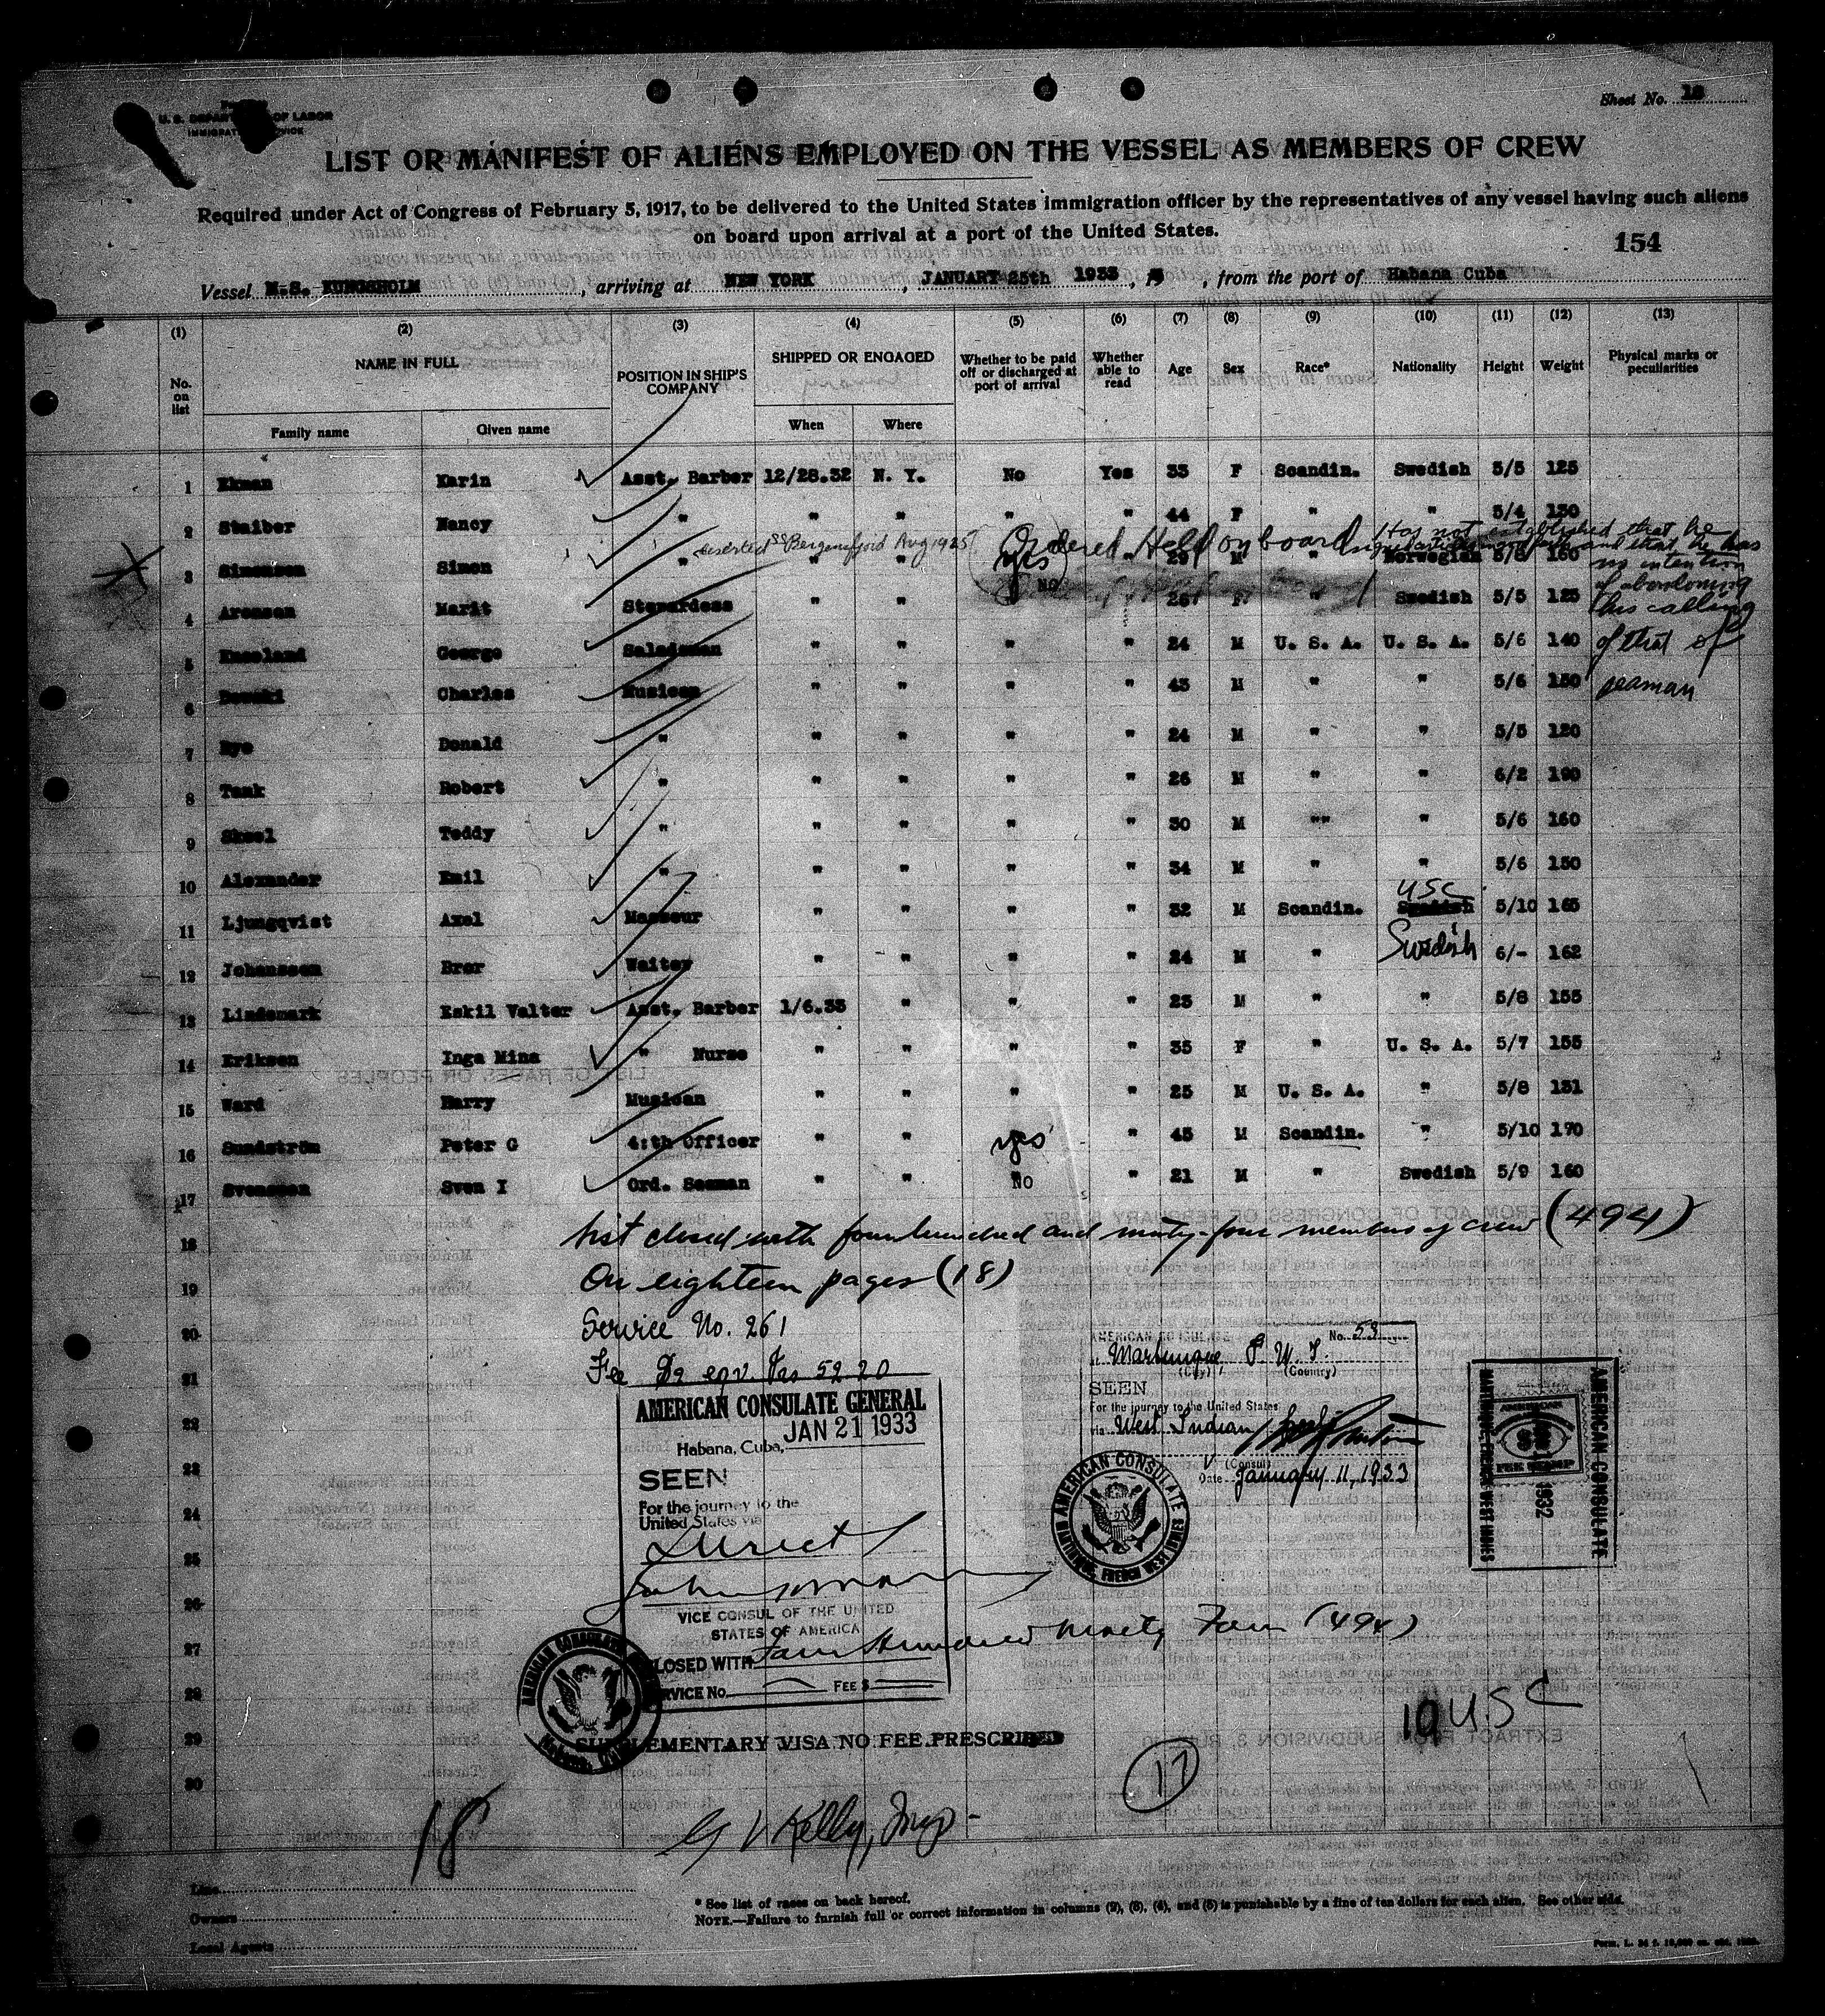 Sheet No. 18
U. S. DEPARTMENT OF LABOR
IMMIGRATION SERVICE
LIST OR MANIFEST OF ALIENS EMPLOYED ON THE VESSEL AS MEMBERS OF CREW
Required under Act of Congress of February 5, 1917, to be delivered to the United States immigration officer by the representatives of any vessel having such aliens
on board upon arrival at a port of the United States.
154
Vessel M.S. KUNGSHOLM, arriving at NEW YORK, JANUARY 25th 1933, 19, from the port of Habana Cuba
(1) (2) (3) (4) (5) (6) (7) (8) (9) (10) (11) (12) (13)
No. on list NAME IN FULL POSITION IN SHIP'S COMPANY SHIPPED OR ENGAGED Whether to be paid off or discharged at port of arrival Whether able to read Age Sex Race* Nationality Height Weight Physical marks or peculiarities
Family name Given name When Where
1 Ekman Karin Asst. Barber 12/28.32 N. Y. No Yes 33 F Scandin. Swedish 5/5 125
2 Staiber Nancy " " " " " 44 F " " 5/4 130
deserted SS Bergensfjord Aug 1925 Ordered Held on board Has not established that he
3 Simonsen Simon " " " yes " 29 M " Norwegian 5/8 160 and that he has
no intention
of abandoning
his calling
of that of
seaman
4 Aronsen Marit Stewardess " " No " 26 F " Swedish 5/5 125
5 George Saladsman " " " " 24 M U. S. A. U. S. A. 5/6 140
6 Charles Musican " " " " 43 M " " 5/6 150
7 Rye Donald " " " " " 24 M " " 5/5 120
8 Tank Robert " " " " " 26 M " " 6/2 190
9 Skool Teddy " " " " " 30 M "" " 5/6 160
10 Alexander Emil " " " " " 34 M " " 5/6 150
USC
11 Ljungqvist Axel Masseur " " " " 32 M Scandin. Swedish 5/10 165
12 Johansson Brer Waiter " " " " 24 M " Swedish 6/- 162
13 Lindemark Eskil Valter Asst. Barber 1/6.33 " " " 23 M " " 5/8 155
14 Eriksen Inga Mina " Nurse " " " " 35 F " U. S. A. 5/7 155
15 Ward Harry Musican " " " " 25 M U. S. A. " 5/8 131
16 Sundström Peter G 4:th Officer " " yes " 45 M Scandin. " 5/10 170
17 Svensson Sven I Ord. Seaman " " No " 21 M " Swedish 5/9 160
18 List closed with four hundred and ninety-four members of crew (494)
19 On eighteen pages (18)
20 Service No. 261
21 Fee $2 eqv. Frs 52.20
22
23
24
25
26
27
28
29
30
AMERICAN CONSULATE GENERAL
JAN 21 1933
Habana, Cuba,
SEEN
For the journey to the
United States via
Direct
VICE CONSUL OF THE UNITED
STATES OF AMERICA
CLOSED WITH Four Hundred Ninety Four (494)
SERVICE No. FEE $
AMERICAN CONSULATE GENERAL
SUPPLEMENTARY VISA NO FEE PRESCRIBED
AMERICAN CONSULATE No. 53
Martinique F. W. I.
(City) (Country)
SEEN
For the journey to the United States
via West Indian
(Consul)
Date January 11, 1933
AMERICAN CONSULATE
MARTINIQUE, FRENCH WEST INDIES
AMERICAN CONSULATE
MARTINIQUE, FRENCH WEST INDIES
AMERICAN
FEE STAMP
1932
19 USC
17
18
G V Kelly, Insp.
Line
Owners
Local Agents
* See list of races on back hereof.
NOTE.—Failure to furnish full or correct information in columns (2), (3), (4), and (5) is punishable by a fine of ten dollars for each alien. See other side.